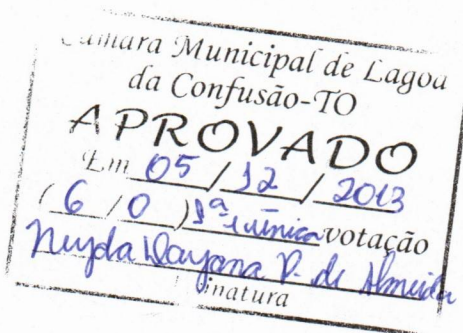 Câmara Municipal de Lagoa
da Confusão-TO
APROVADO
Em 05 / 12 / 2013
( 6 / 0 ) 1ª e única votação
Dayana P. de Almeida
inatura